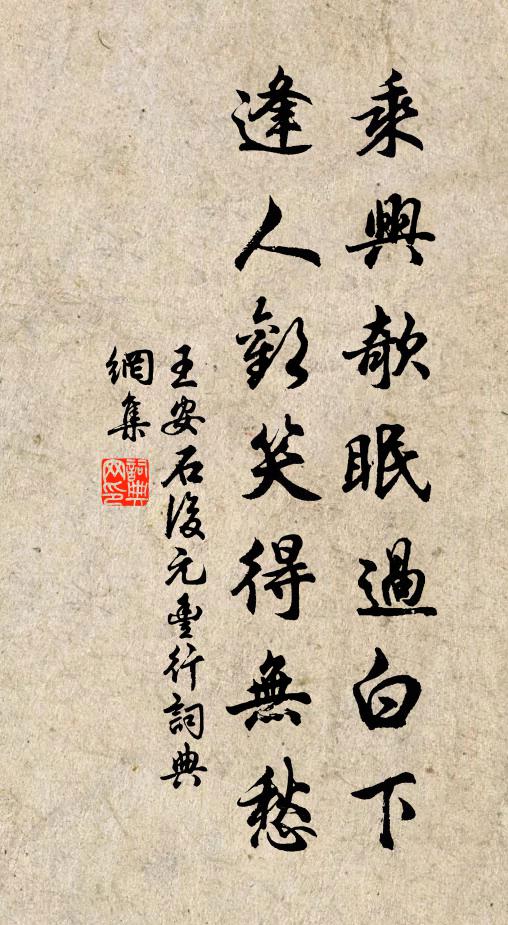 乘興欹眠過白下
逢人歡笑得無愁
王安石後元豐行詞典
網集
詞典
网印